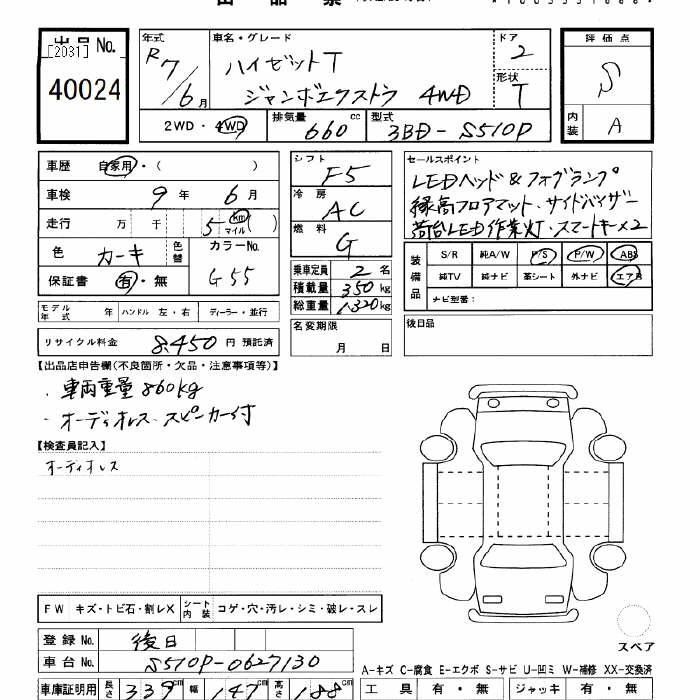 出品No.
[2031]
40024
年式
R7/6月
車名・グレード
ハイゼットT
ジャンボエクストラ 4WD
ドア
2
形状
T
評価点
S
内装
A
2WD・4WD
排気量 660 cc
型式 3BD-S510P
車歴 自家用・( )
車検 9年 6月
走行 万 千 5 km マイル ( )
色 カーキ 色替
カラーNo.
G55
保証書 有・無
シフト
F5
冷房
AC
燃料
G
乗車定員 2名
積載量 350kg
総重量 1,320kg
名変期限
月 日
セールスポイント
LEDヘッド&フォグランプ
縁高フロアマット・サイドバイザー
荷台LED作業灯・スマートキー×2
装備品
S/R 純A/W P/S P/W ABS
純TV 純ナビ 革シート 外ナビ エアB
ナビ型番:
後日品
モデル年式 年 ハンドル 左・右 ディーラー・並行
リサイクル料金 8,450円 預託済
【出品店申告欄(不良箇所・欠品・注意事項等)】
・車両重量860kg
・オーディオレス・スピーカー付
【検査員記入】
オーディオレス
FW キズ・トビ石・割レX
シート内装 コゲ・穴・汚レ・シミ・破レ・スレ
登録No. 後日
車台No. S510P-0627130
車庫証明用 長さ 339cm 幅 147cm 高さ 188cm
スペア
A-キズ C-腐食 E-エクボ S-サビ U-凹ミ W-補修 XX-交換済
工具 有・無 ジャッキ 有・無